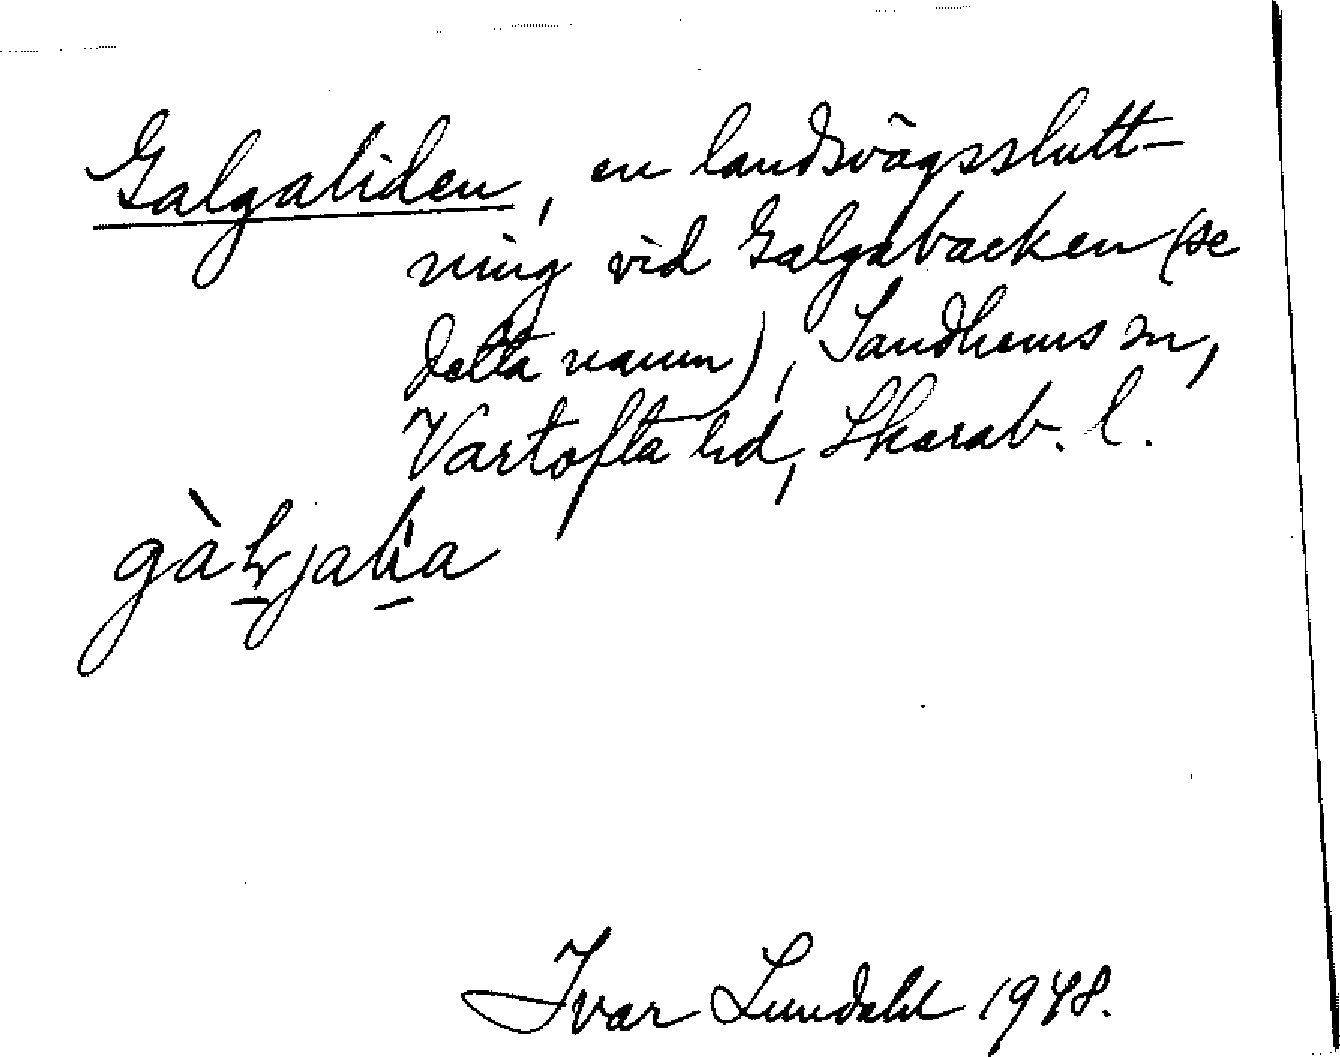 Galgaliden, en landsvägsslutt-
ning vid Galgabacken (se
detta namn), Sandhems sn,
Vartofta hd, Skarab. l.
Ivar Lundahl 1948.